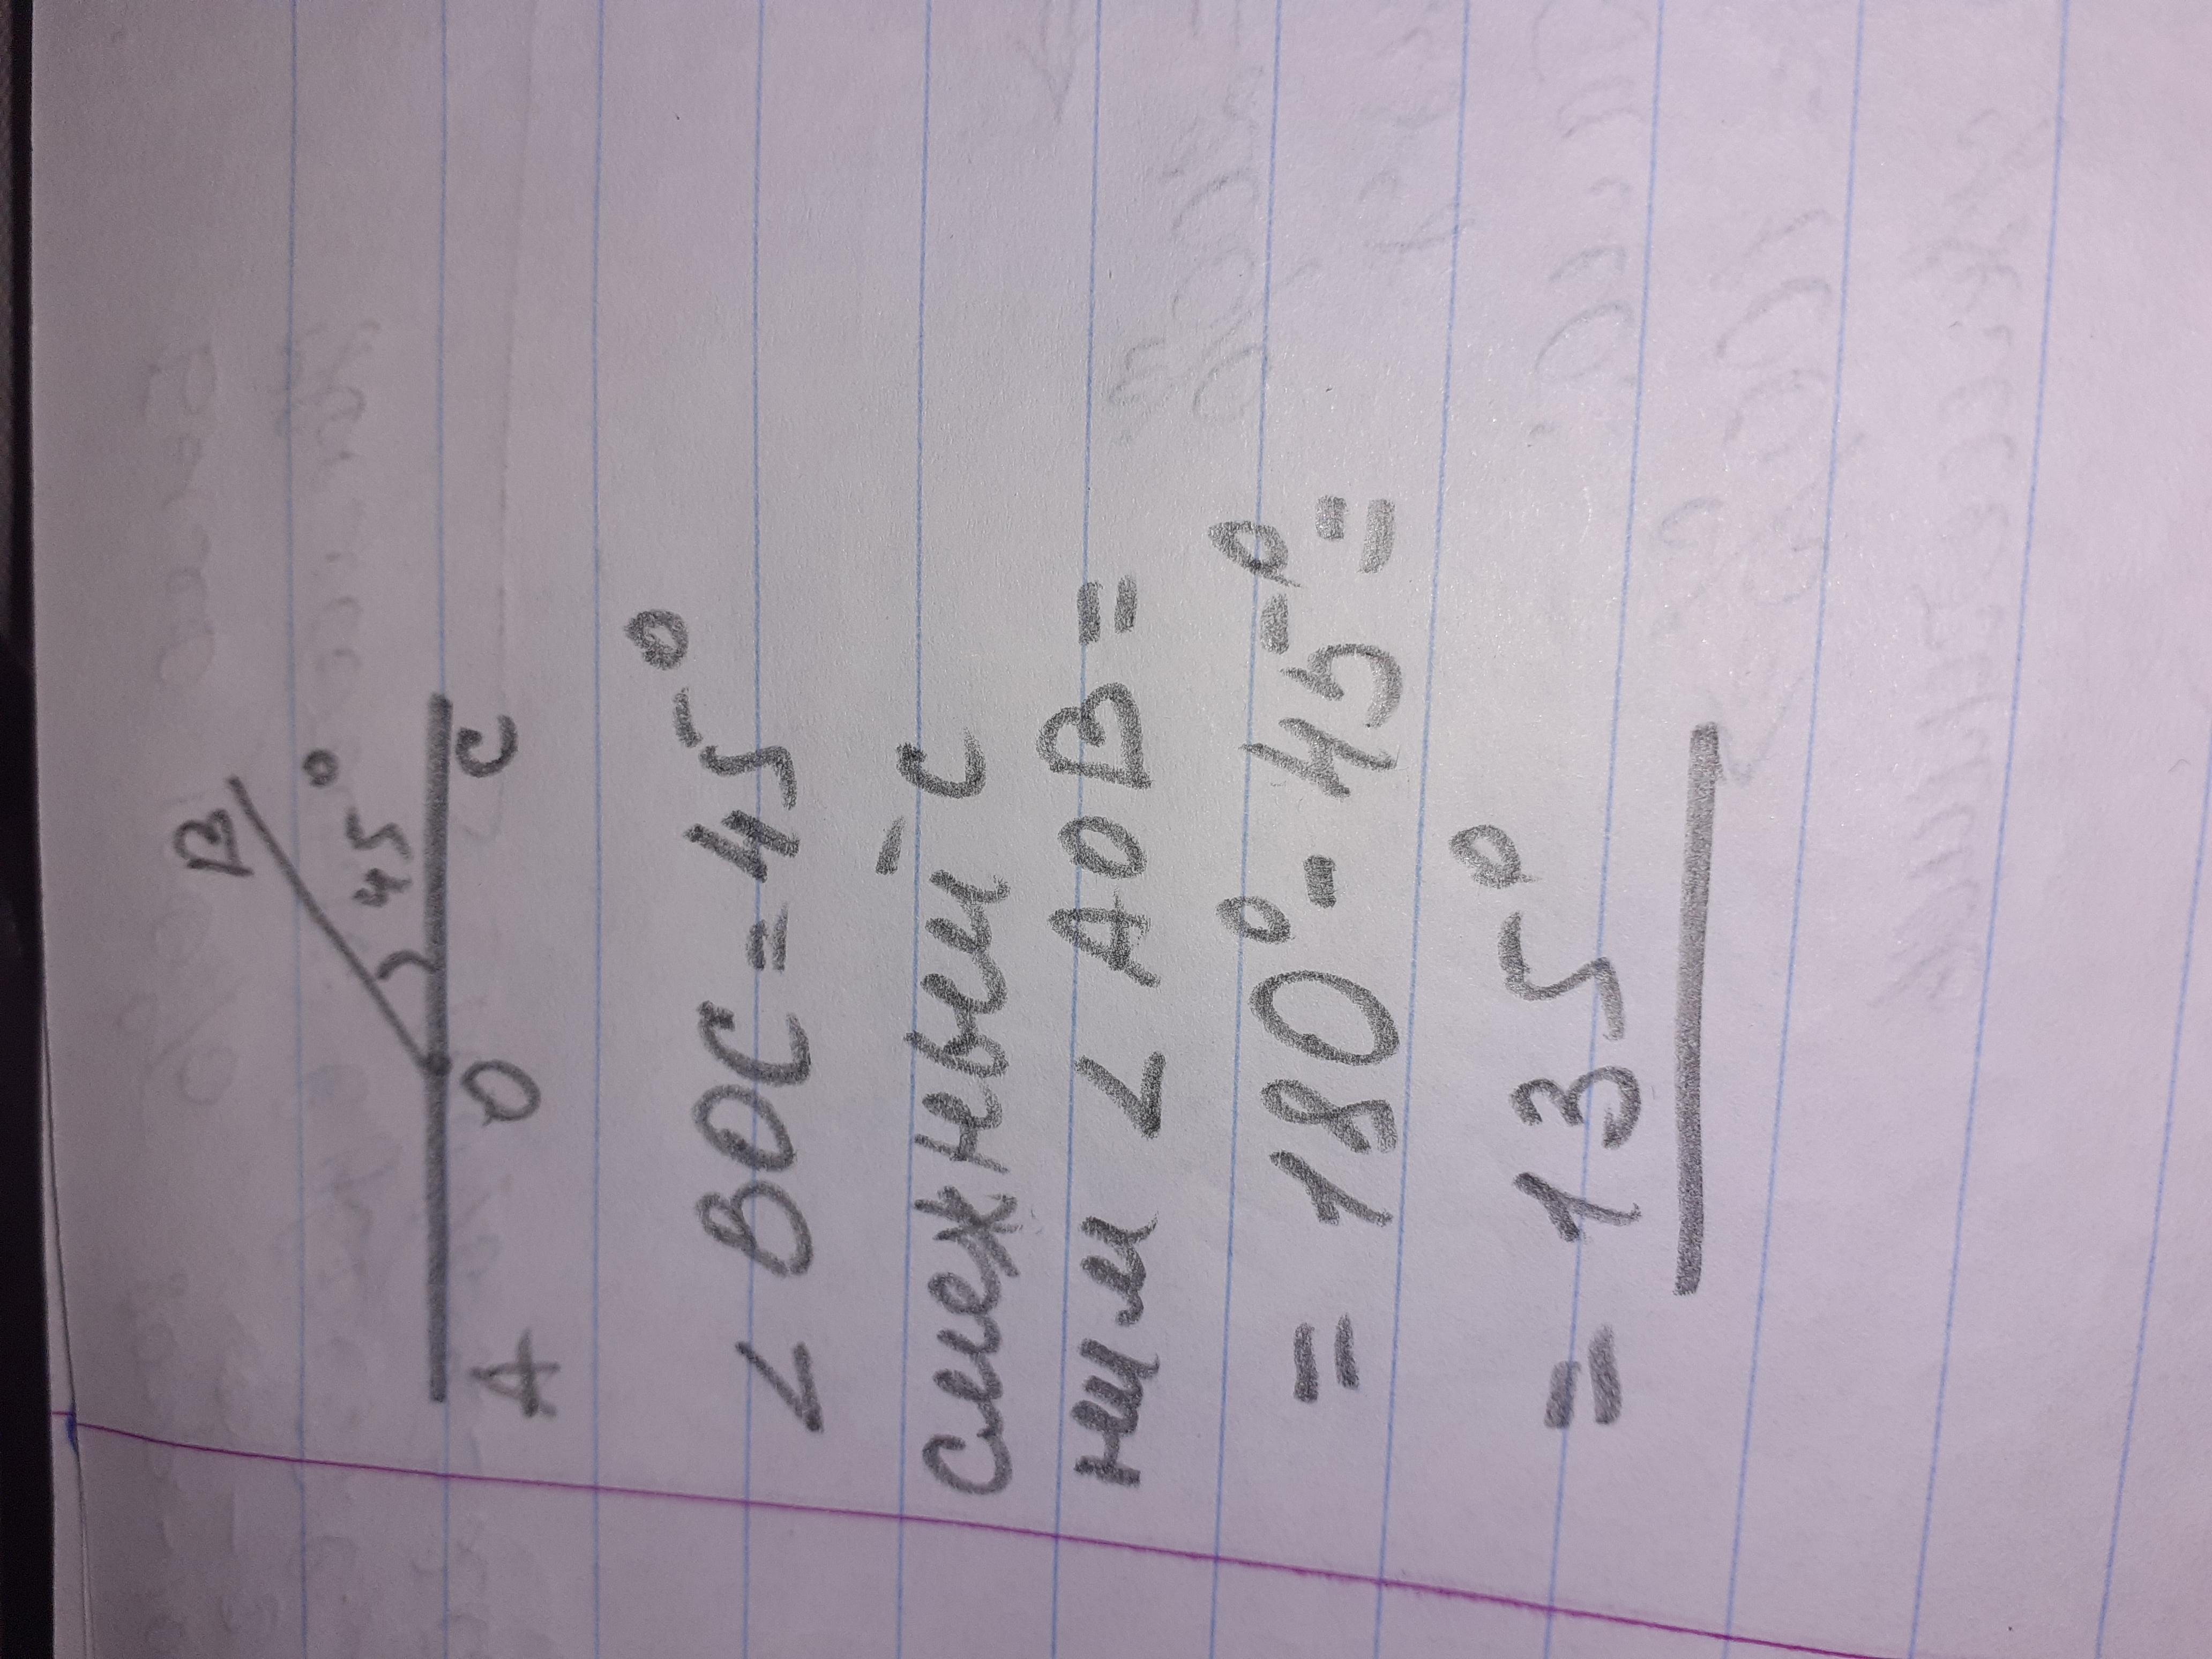 B
45°
A O C
∠ BOC = 45°
Смежный с
ним ∠ AOB =
= 180° - 45° =
= 135°